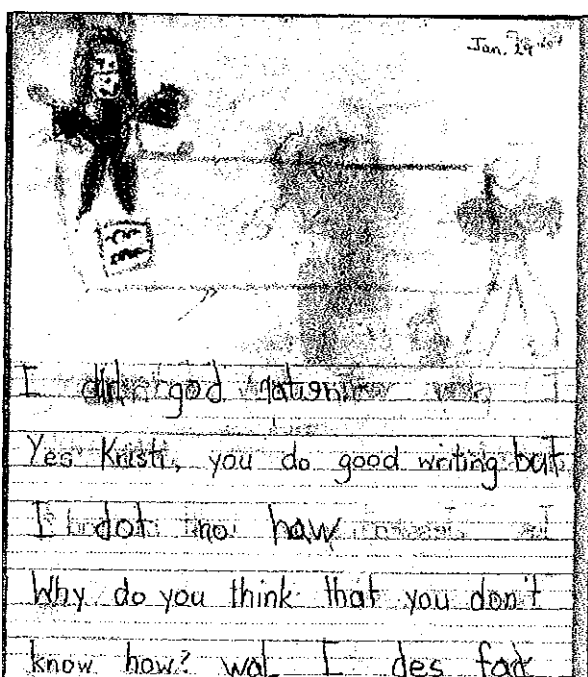 Jan. 29
I did god
Yes Kristi, you do good writing but
I dot no haw
Why do you think that you don't
know how? wal I des fact